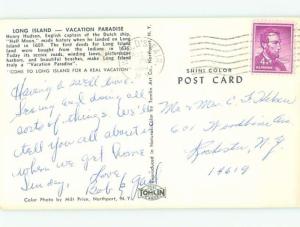 LONG ISLAND — VACATION PARADISE
Henry Hudson, English captain of the Dutch ship,
"Half Moon," made history when he landed on Long
Island in 1609. The first deeds for Long Island
land were bought from the Indians in 1636.
Today's sandy beaches, winding lanes, picturesque
harbors, and beautiful beaches, make Long Island
truly a "Vacation Paradise."
"COME TO LONG ISLAND FOR A REAL VACATION"
Having a swell time.
Seeing and doing all
sorts of things. We'll
tell you all about it
when we get home
Sunday. Love,
Bob &
Color Photo by Milt Price, Northport, N.Y.
Reproduced in Natural-Color by Tomlin Art Co., Northport, N.Y.
TOMLIN
SHINI-COLOR
POST CARD
4¢
Mr & Mrs C F
601
Rochester, N.Y.
14619